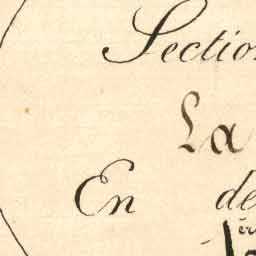 Section
La
En de